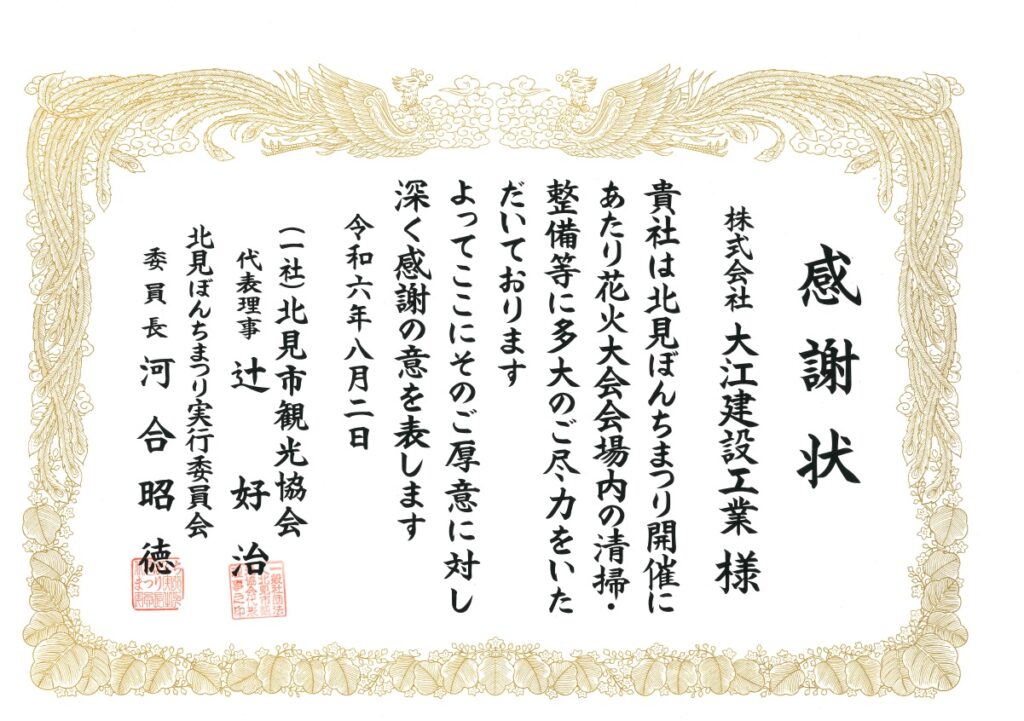 感謝状
株式会社 大江建設工業 様
貴社は北見ぼんちまつり開催に
あたり花火大会会場内の清掃・
整備等に多大のご尽力をいた
だいております
よってここにそのご厚意に対し
深く感謝の意を表します
令和六年八月二日
(一社)北見市観光協会
代表理事 辻 好治
北見ぼんちまつり実行委員会
委員長 河合昭徳